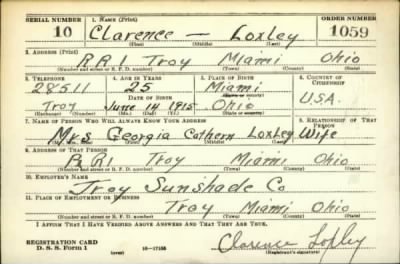 SERIAL NUMBER 1. NAME (Print) ORDER NUMBER
10 Clarence — Loxley 1059
(First) (Middle) (Last)
2. ADDRESS (Print)
RR1 Troy Miami Ohio
(Number and street or R. F. D. number) (Town) (County) (State)
3. TELEPHONE 4. AGE IN YEARS 5. PLACE OF BIRTH 6. COUNTRY OF CITIZENSHIP
28511 25 Miami
DATE OF BIRTH (Town or county)
Troy June 14 1915 Ohio U.S.A.
(Exchange) (Number) (Mo.) (Day) (Yr.) (State or country)
7. NAME OF PERSON WHO WILL ALWAYS KNOW YOUR ADDRESS 8. RELATIONSHIP OF THAT PERSON
Mrs Georgia Cothern Loxley Wife
(Mr., Mrs., Miss) (First) (Middle) (Last)
9. ADDRESS OF THAT PERSON
RR1 Troy Miami Ohio
(Number and street or R. F. D. number) (Town) (County) (State)
10. EMPLOYER'S NAME
Troy Sunshade Co
11. PLACE OF EMPLOYMENT OR BUSINESS
Troy Miami Ohio
(Number and street or R. F. D. number) (Town) (County) (State)
I AFFIRM THAT I HAVE VERIFIED ABOVE ANSWERS AND THAT THEY ARE TRUE.
REGISTRATION CARD
D. S. S. Form 1 (over) 16—17105 Clarence Loxley
(Registrant's signature)